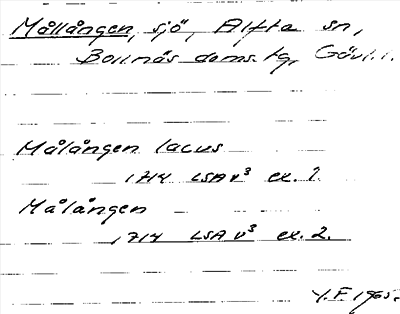 Mållången, sjö, Alfta sn,
Bollnäs doms. tg, Gävl. l.
Målången lacus
1714 LSA v³ ex. 1.
Målången
1714 LSA v³ ex. 2.
Y.F. 1965.